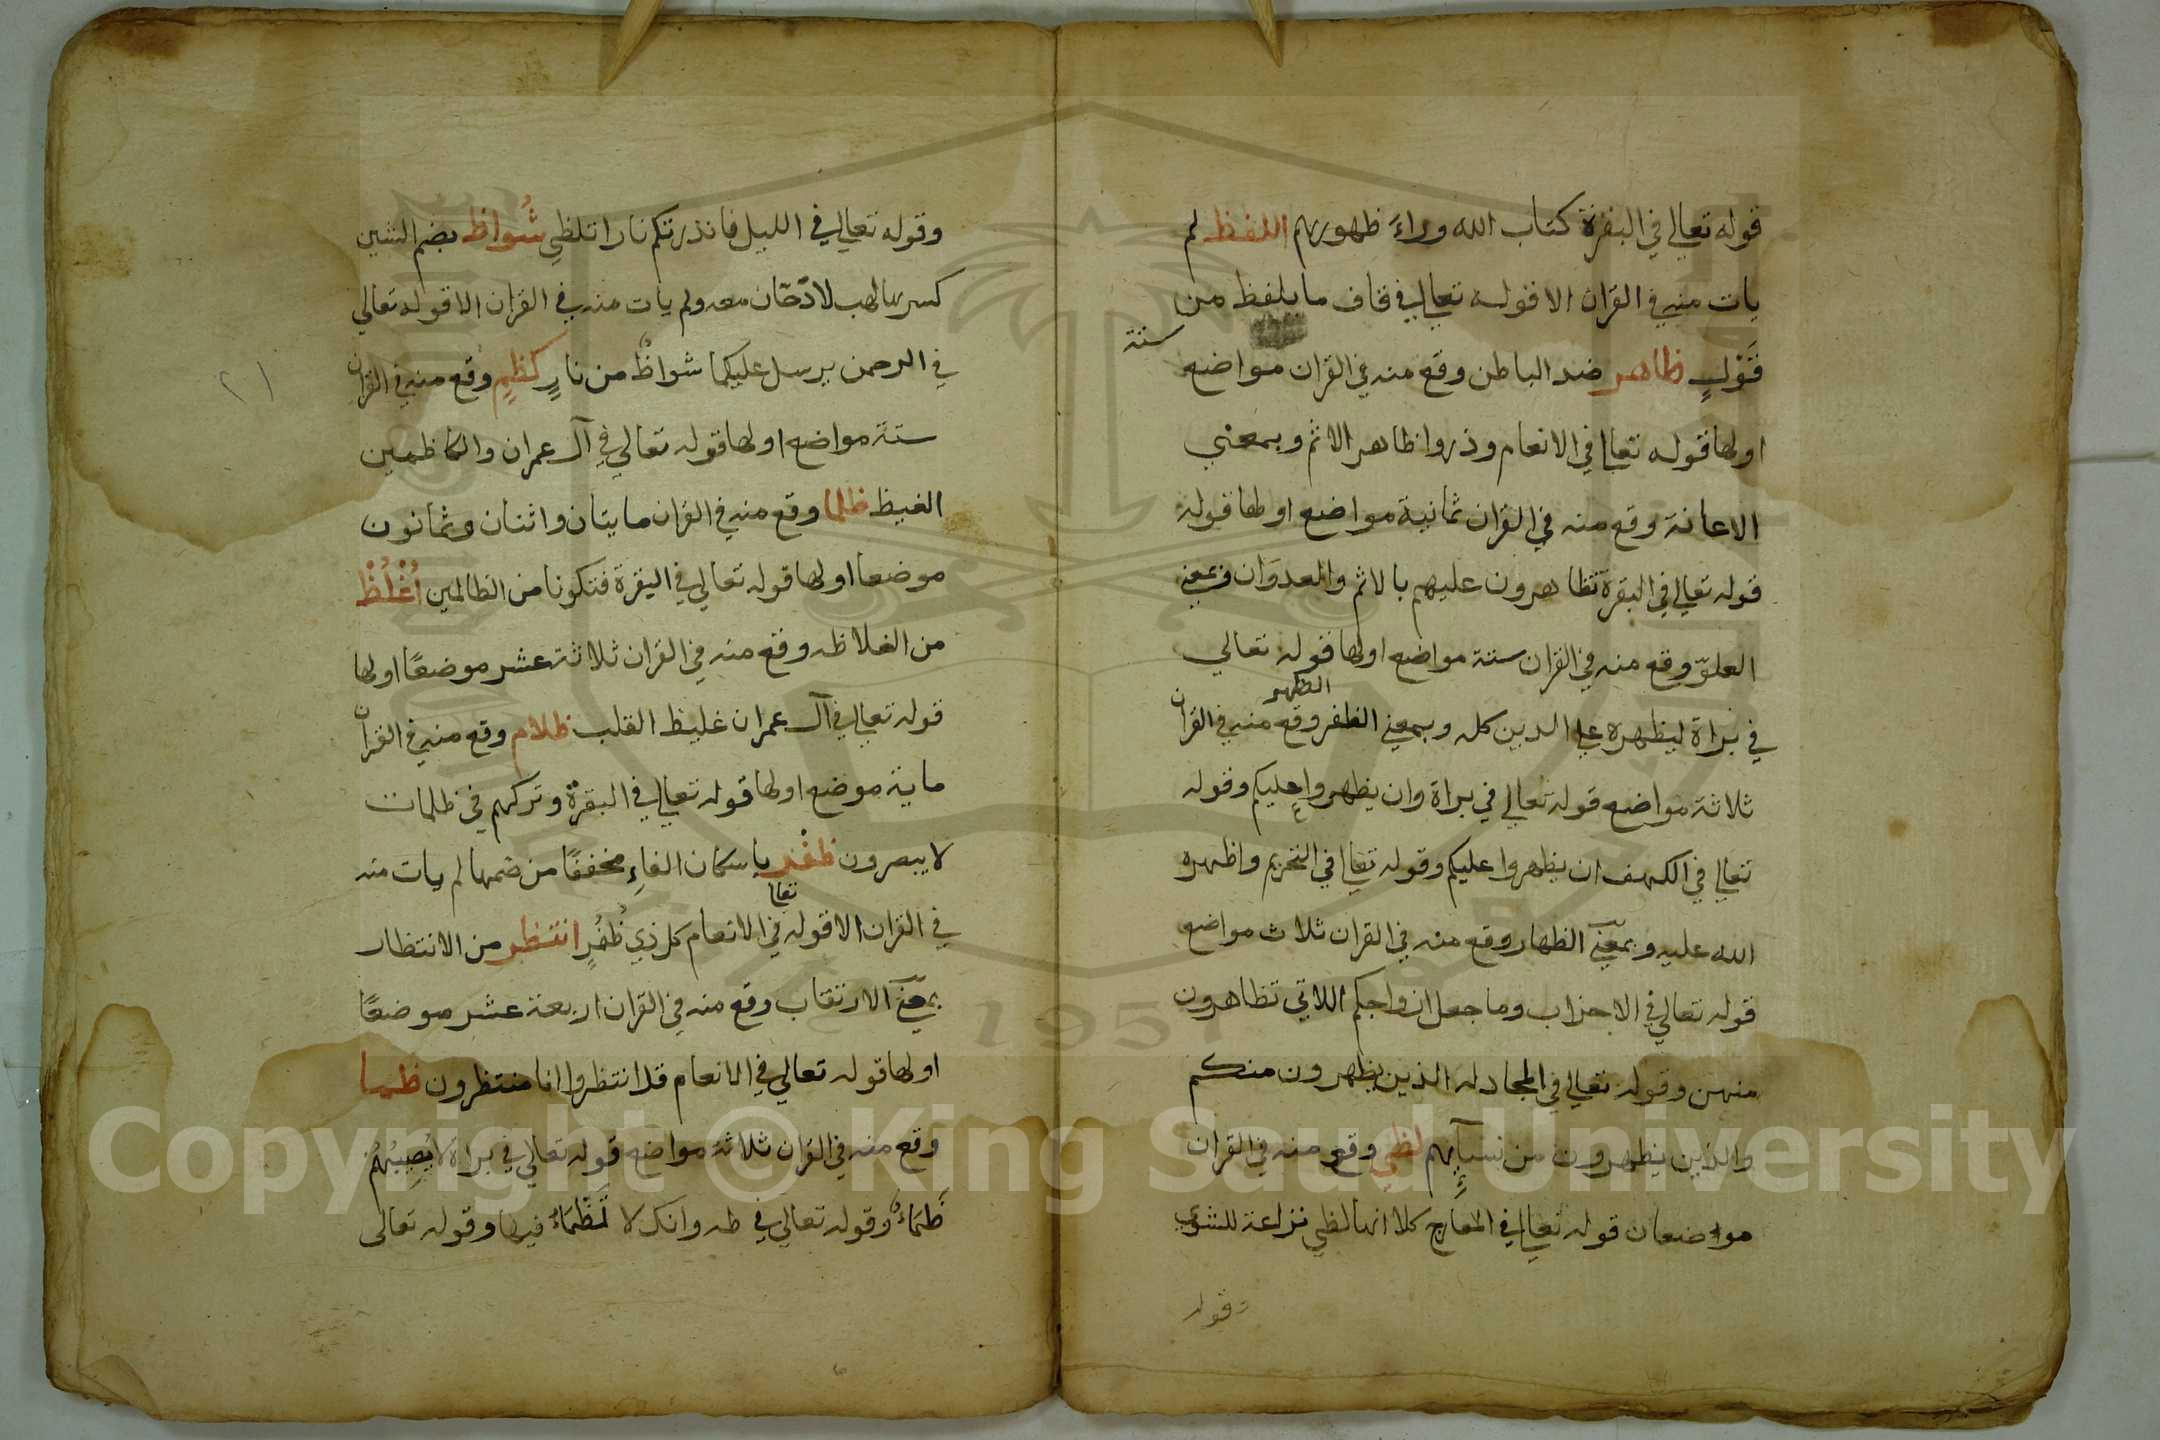 قوله تعالي في البقرة كتاب الله وراءَ ظهورهم اللفظ لم
يات منه في القران الا قوله تعالي في قاف ما يلفظ من
قَوْلٍ ظاهر ضد الباطن وقع منه في القران مواضع ستة
اولها قوله تعالي في الانعام وذروا ظاهر الاثم وبمعني
الاعانة وقع منه في القران ثمانية مواضع اولها قوله
قوله تعالي في البقرة تظاهرون عليهم بالاثم والعدوَان وبمعني
العلوّ وقع منه في القران ستة مواضع اولها قوله تعالي
في براة ليظهره علي الدين كله وبمعني الظفر وقع منه في القران
الظهر
ثلاثة مواضع قوله تعالي في براة وان يظهروا عليكم وقوله
تعالي في الكهف ان يظهروا عليكم وقوله تعالي في التحريم واظهره
الله عليه وبمعني الظهار وقع منه في القران ثلاث مواضع
قوله تعالي في الاحزاب وما جعل ازواجكم اللاتي تظاهرون
منهن وقوله تعالي في المجادله الذين يظهرون منكم
والذين يظهرون من نسآئِهم لظي وقع منه في القران
موضعان قوله تعالي في المعارج كلا انها لظي نزاعة للشوي
وقوله
وقوله تعالي في الليل فانذرتكم نارا تلظي شُواظ بضم الشين
كسرها لهب لا دخان معه ولم يات منه في القران الا قوله تعالي
في الرحمن يرسل عليكما شواظٌ من نارٍ كظيمٍ وقع منه في القران
ستة مواضع اولها قوله تعالي في آل عمران والكاظمين
الغيظ ظلما وقع منه في القران مايتان واثنان وثمانون
موضعا اولها قوله تعالي في البقرة فتكونا من الظالمين اُغْلُظْ
من الغلاظه وقع منه في القران ثلاثة عشر موضعًا اولها
قوله تعالي في آل عمران غليظ القلب ظلام وقع منه في القران
ماية موضع اولها قوله تعالي في البقرة وتركهم في ظلمات
لا يبصرون ظفْر باسكان الفاءِ مخففًا من ضمها لم يات منه
في القران الا قوله تعا في الانعام كل ذي ظُفُرٍ انتظر من الانتظار
بمعني الارتقاب وقع منه في القران اربعة عشر موضعًا
اولها قوله تعالي في الانعام قل انتظروا انا منتظرون ظما
وقع منه في القران ثلاثة مواضع قوله تعالي في براة لا يُصِيبُهُمْ
ظَمَاءٌ وقوله تعالي في طه وانك لا تَظْمَاءُ فيها وقوله تعالى
٢١
Copyright © King Saud University
1957